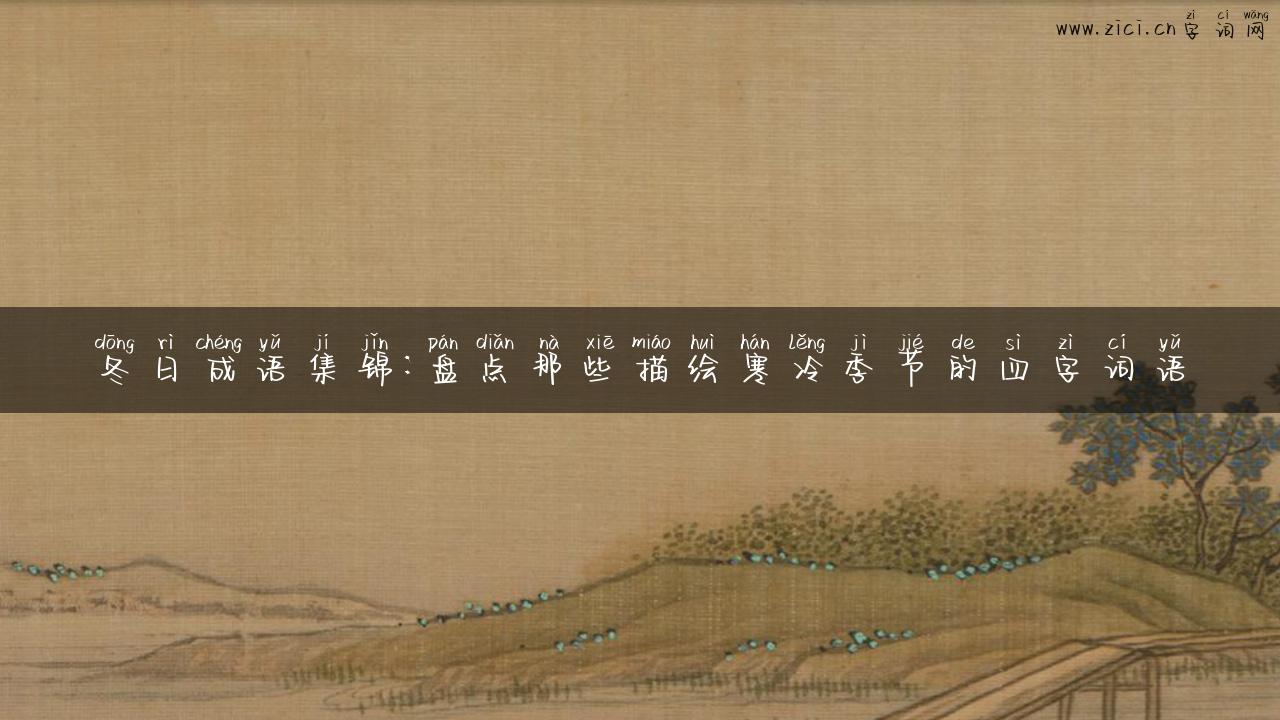 zì cí wǎng
www.zici.cn字词网
dōng rì chéng yǔ jí jǐn pán diǎn nà xiē miáo huì hán lěng jì jié de sì zì cí yǔ
冬日成语集锦:盘点那些描绘寒冷季节的四字词语